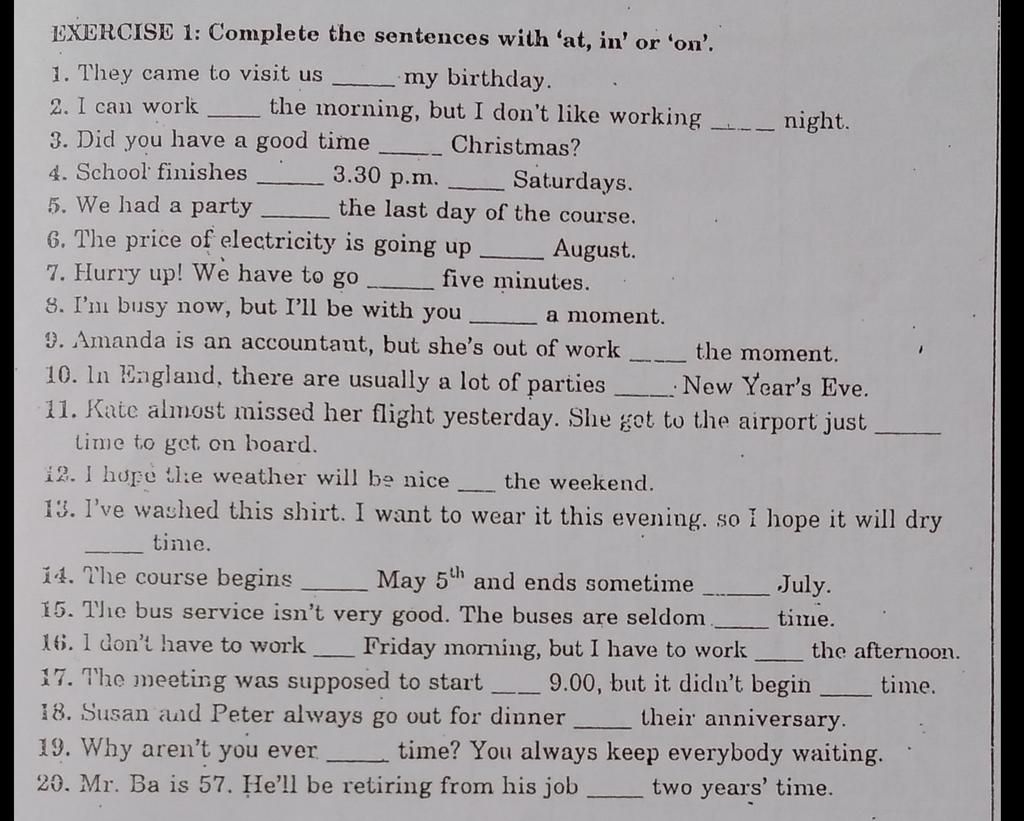 EXERCISE 1: Complete the sentences with 'at, in' or 'on'.
1. They came to visit us _____ my birthday.
2. I can work _____ the morning, but I don't like working _____ night.
3. Did you have a good time _____ Christmas?
4. School finishes _____ 3.30 p.m. _____ Saturdays.
5. We had a party _____ the last day of the course.
6. The price of electricity is going up _____ August.
7. Hurry up! We have to go _____ five minutes.
8. I'm busy now, but I'll be with you _____ a moment.
9. Amanda is an accountant, but she's out of work _____ the moment.
10. In England, there are usually a lot of parties _____ New Year's Eve.
11. Kate almost missed her flight yesterday. She got to the airport just _____
time to get on board.
12. I hope the weather will be nice ____ the weekend.
13. I've washed this shirt. I want to wear it this evening. so I hope it will dry
_____ time.
14. The course begins _____ May 5th and ends sometime _____ July.
15. The bus service isn't very good. The buses are seldom _____ time.
16. I don't have to work ____ Friday morning, but I have to work ____ the afternoon.
17. The meeting was supposed to start ____ 9.00, but it didn't begin ____ time.
18. Susan and Peter always go out for dinner _____ their anniversary.
19. Why aren't you ever _____ time? You always keep everybody waiting.
20. Mr. Ba is 57. He'll be retiring from his job _____ two years' time.